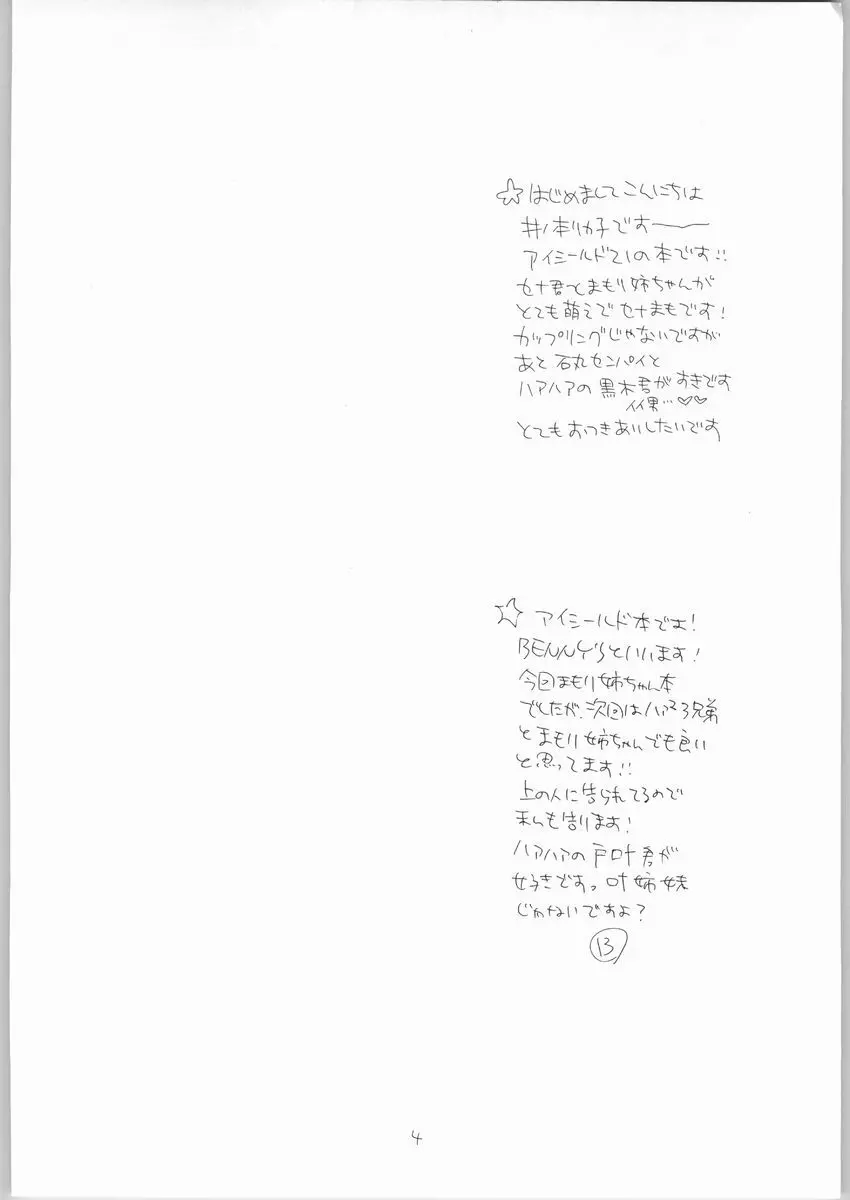 ☆はじめましてこんにちは
井ノ本リカ子です〜
アイシールド21の本です!!
セナ君とまもり姉ちゃんが
とても萌えでセナまもです!
カップリングじゃないですが
あと石丸センパイと
ハアハアの黒木君がすきです
イイ男…♡♡
とてもおつきあいしたいです
☆アイシールド本です!
BENNY'Sといいます!
今回まもり姉ちゃん本
でしたが、次回はハァ²3兄弟
とまもり姉ちゃんでも良い
と思ってます!!
上の人に告られてるので
私も告ります!
ハアハアの戸叶君が
好きですっ叶姉妹
じゃないですよ?
B
4